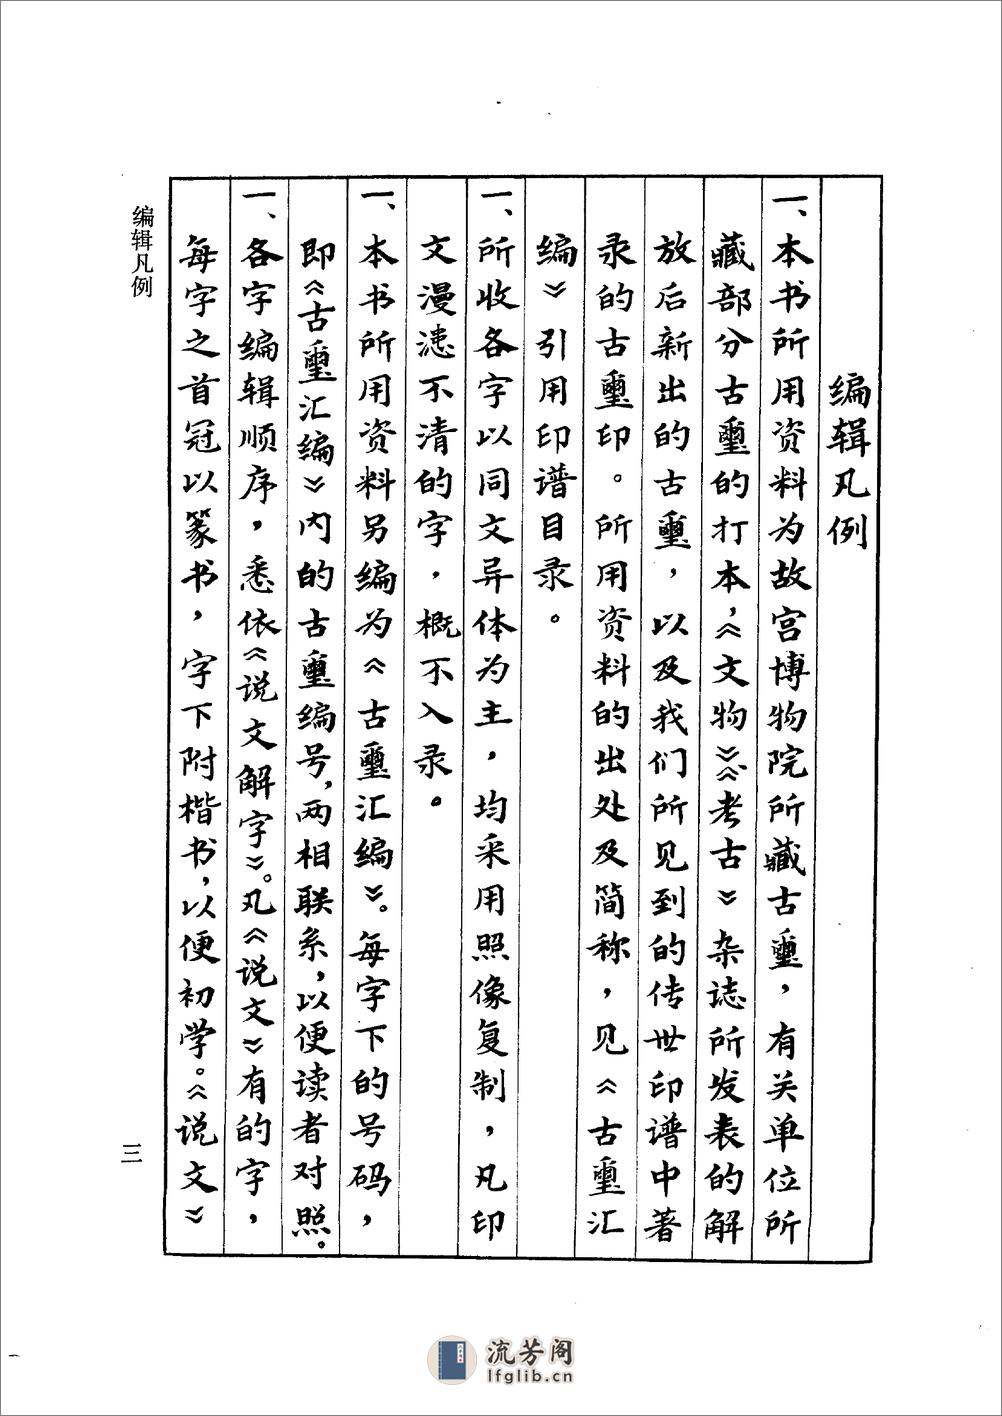 编辑凡例
一、本书所用资料为故宫博物院所藏古璽，有关单位所
藏部分古璽的打本，《文物》《考古》杂志所发表的解
放后新出的古璽，以及我们所见到的传世印谱中著
录的古璽印。所用资料的出处及简称，见《古璽汇
编》引用印谱目录。
一、所收各字以同文异体为主，均采用照像复制，凡印
文漫漶不清的字，概不入录。
一、本书所用资料另编为《古璽汇编》。每字下的号码，
即《古璽汇编》内的古璽编号，两相联系，以便读者对照。
一、各字编辑顺序，悉依《说文解字》。凡《说文》有的字，
每字之首冠以篆书，字下附楷书，以便初学。《说文》
编辑凡例
三
流芳阁
lfglib.cn